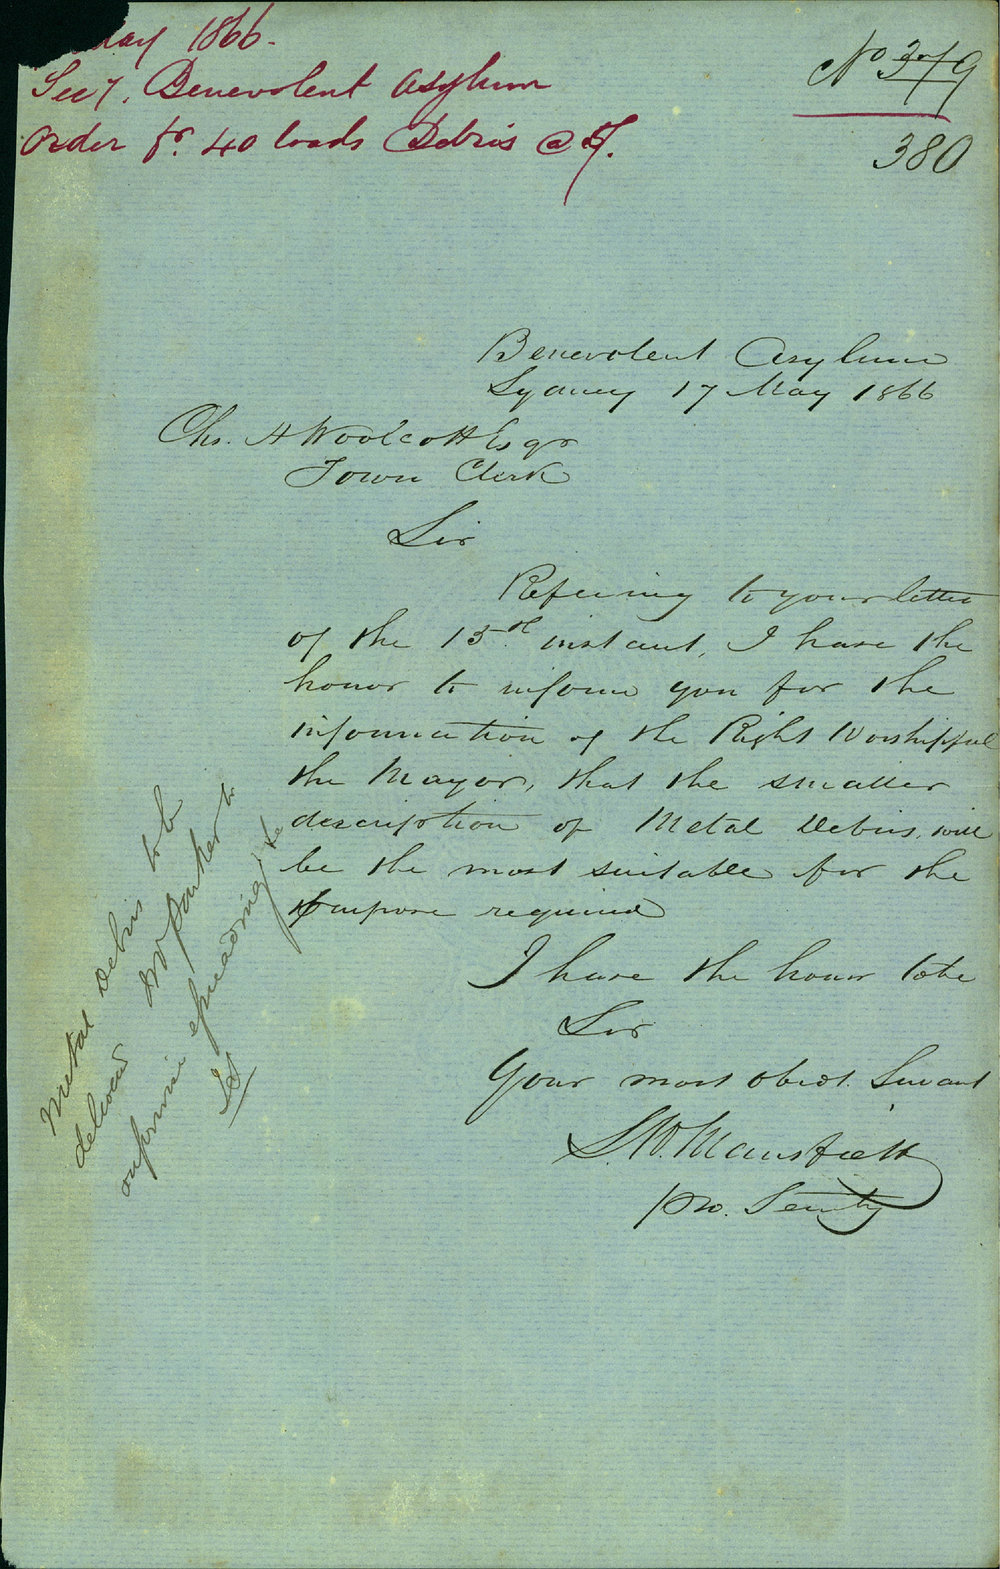 May 1866.
Secy. Benevolent Asylum
Order fr. 40 loads Debris @
No 379
380
Benevolent Asylum
Sydney 17 May 1866
Chs. H Woolcott Esqr
Town Clerk
Sir
Refering to your letter
of the 15th instant, I have the
honor to inform you for the
information of the Right Worshipful
the Mayor, that the smaller
description of Metal Debris, will
be the most suitable for the
purpose required
I have the honor to be
Sir
Your most obedt. Servant
S. Mansfield
pro. Secrety
Metal Debris to be
delivered Mr Parker to
supervise spreading &c